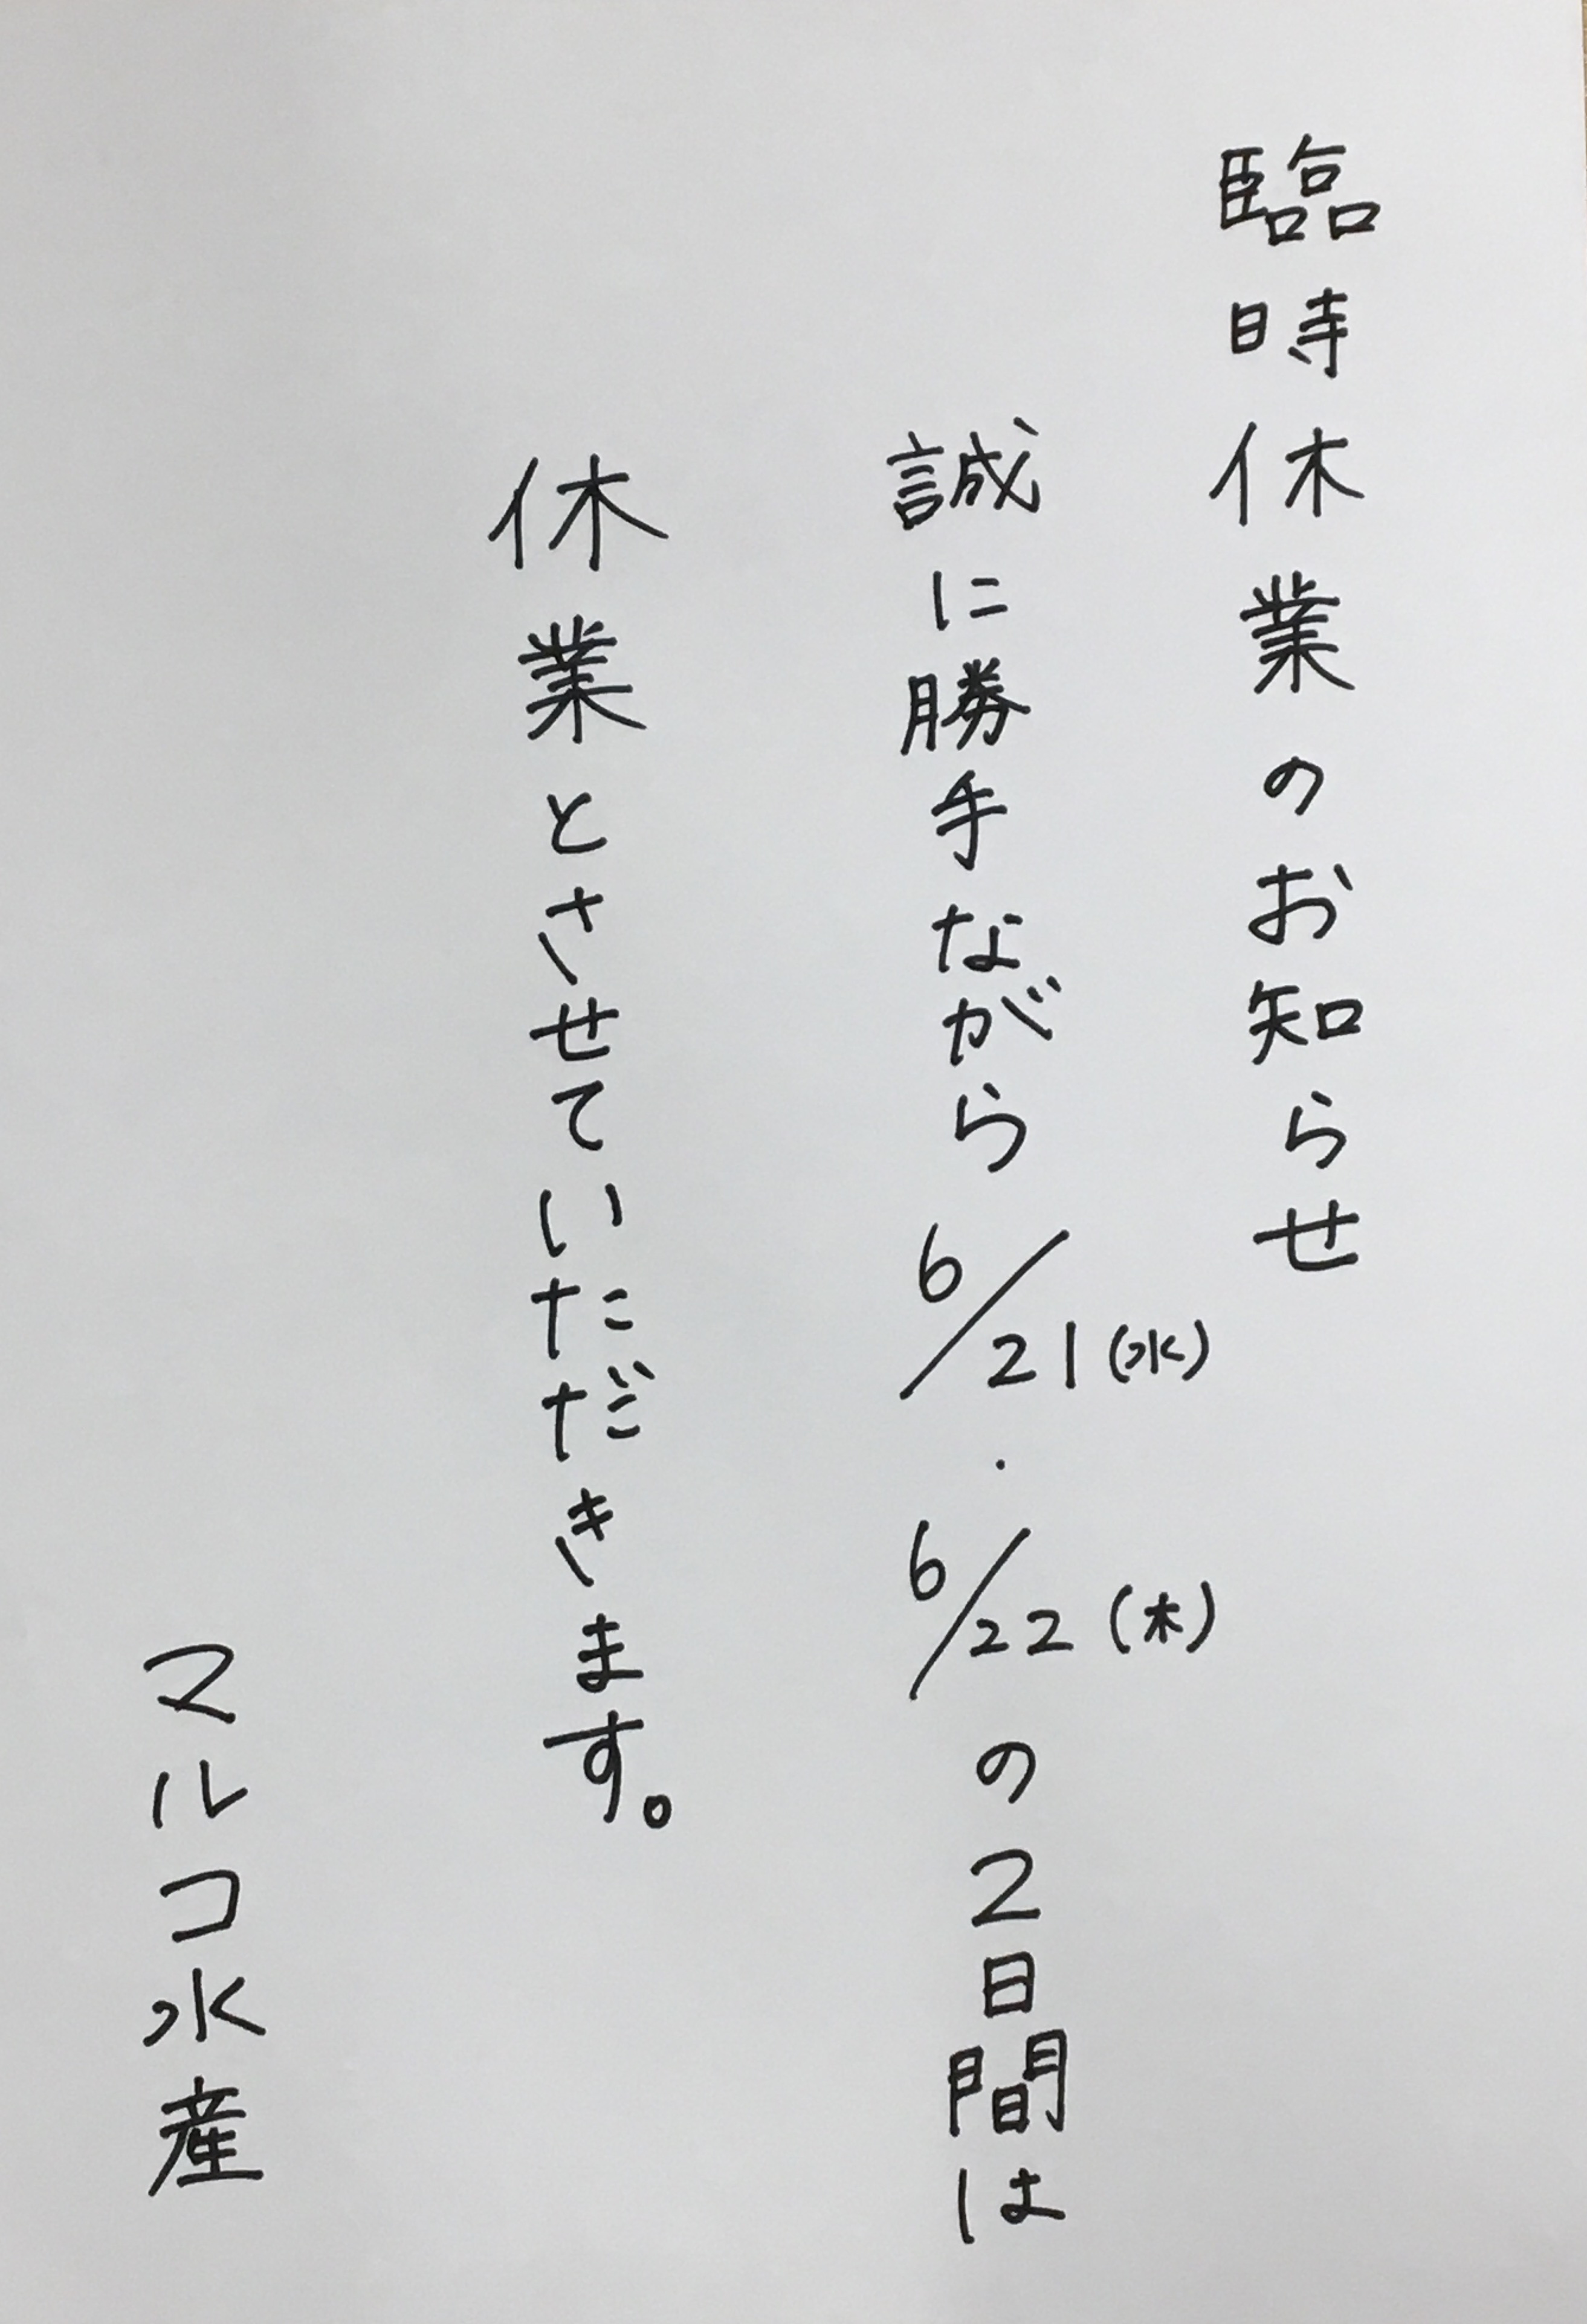 臨時休業のお知らせ
誠に勝手ながら6/21(水)・6/22(木)の2日間は
休業とさせていただきます。
マルコ水産